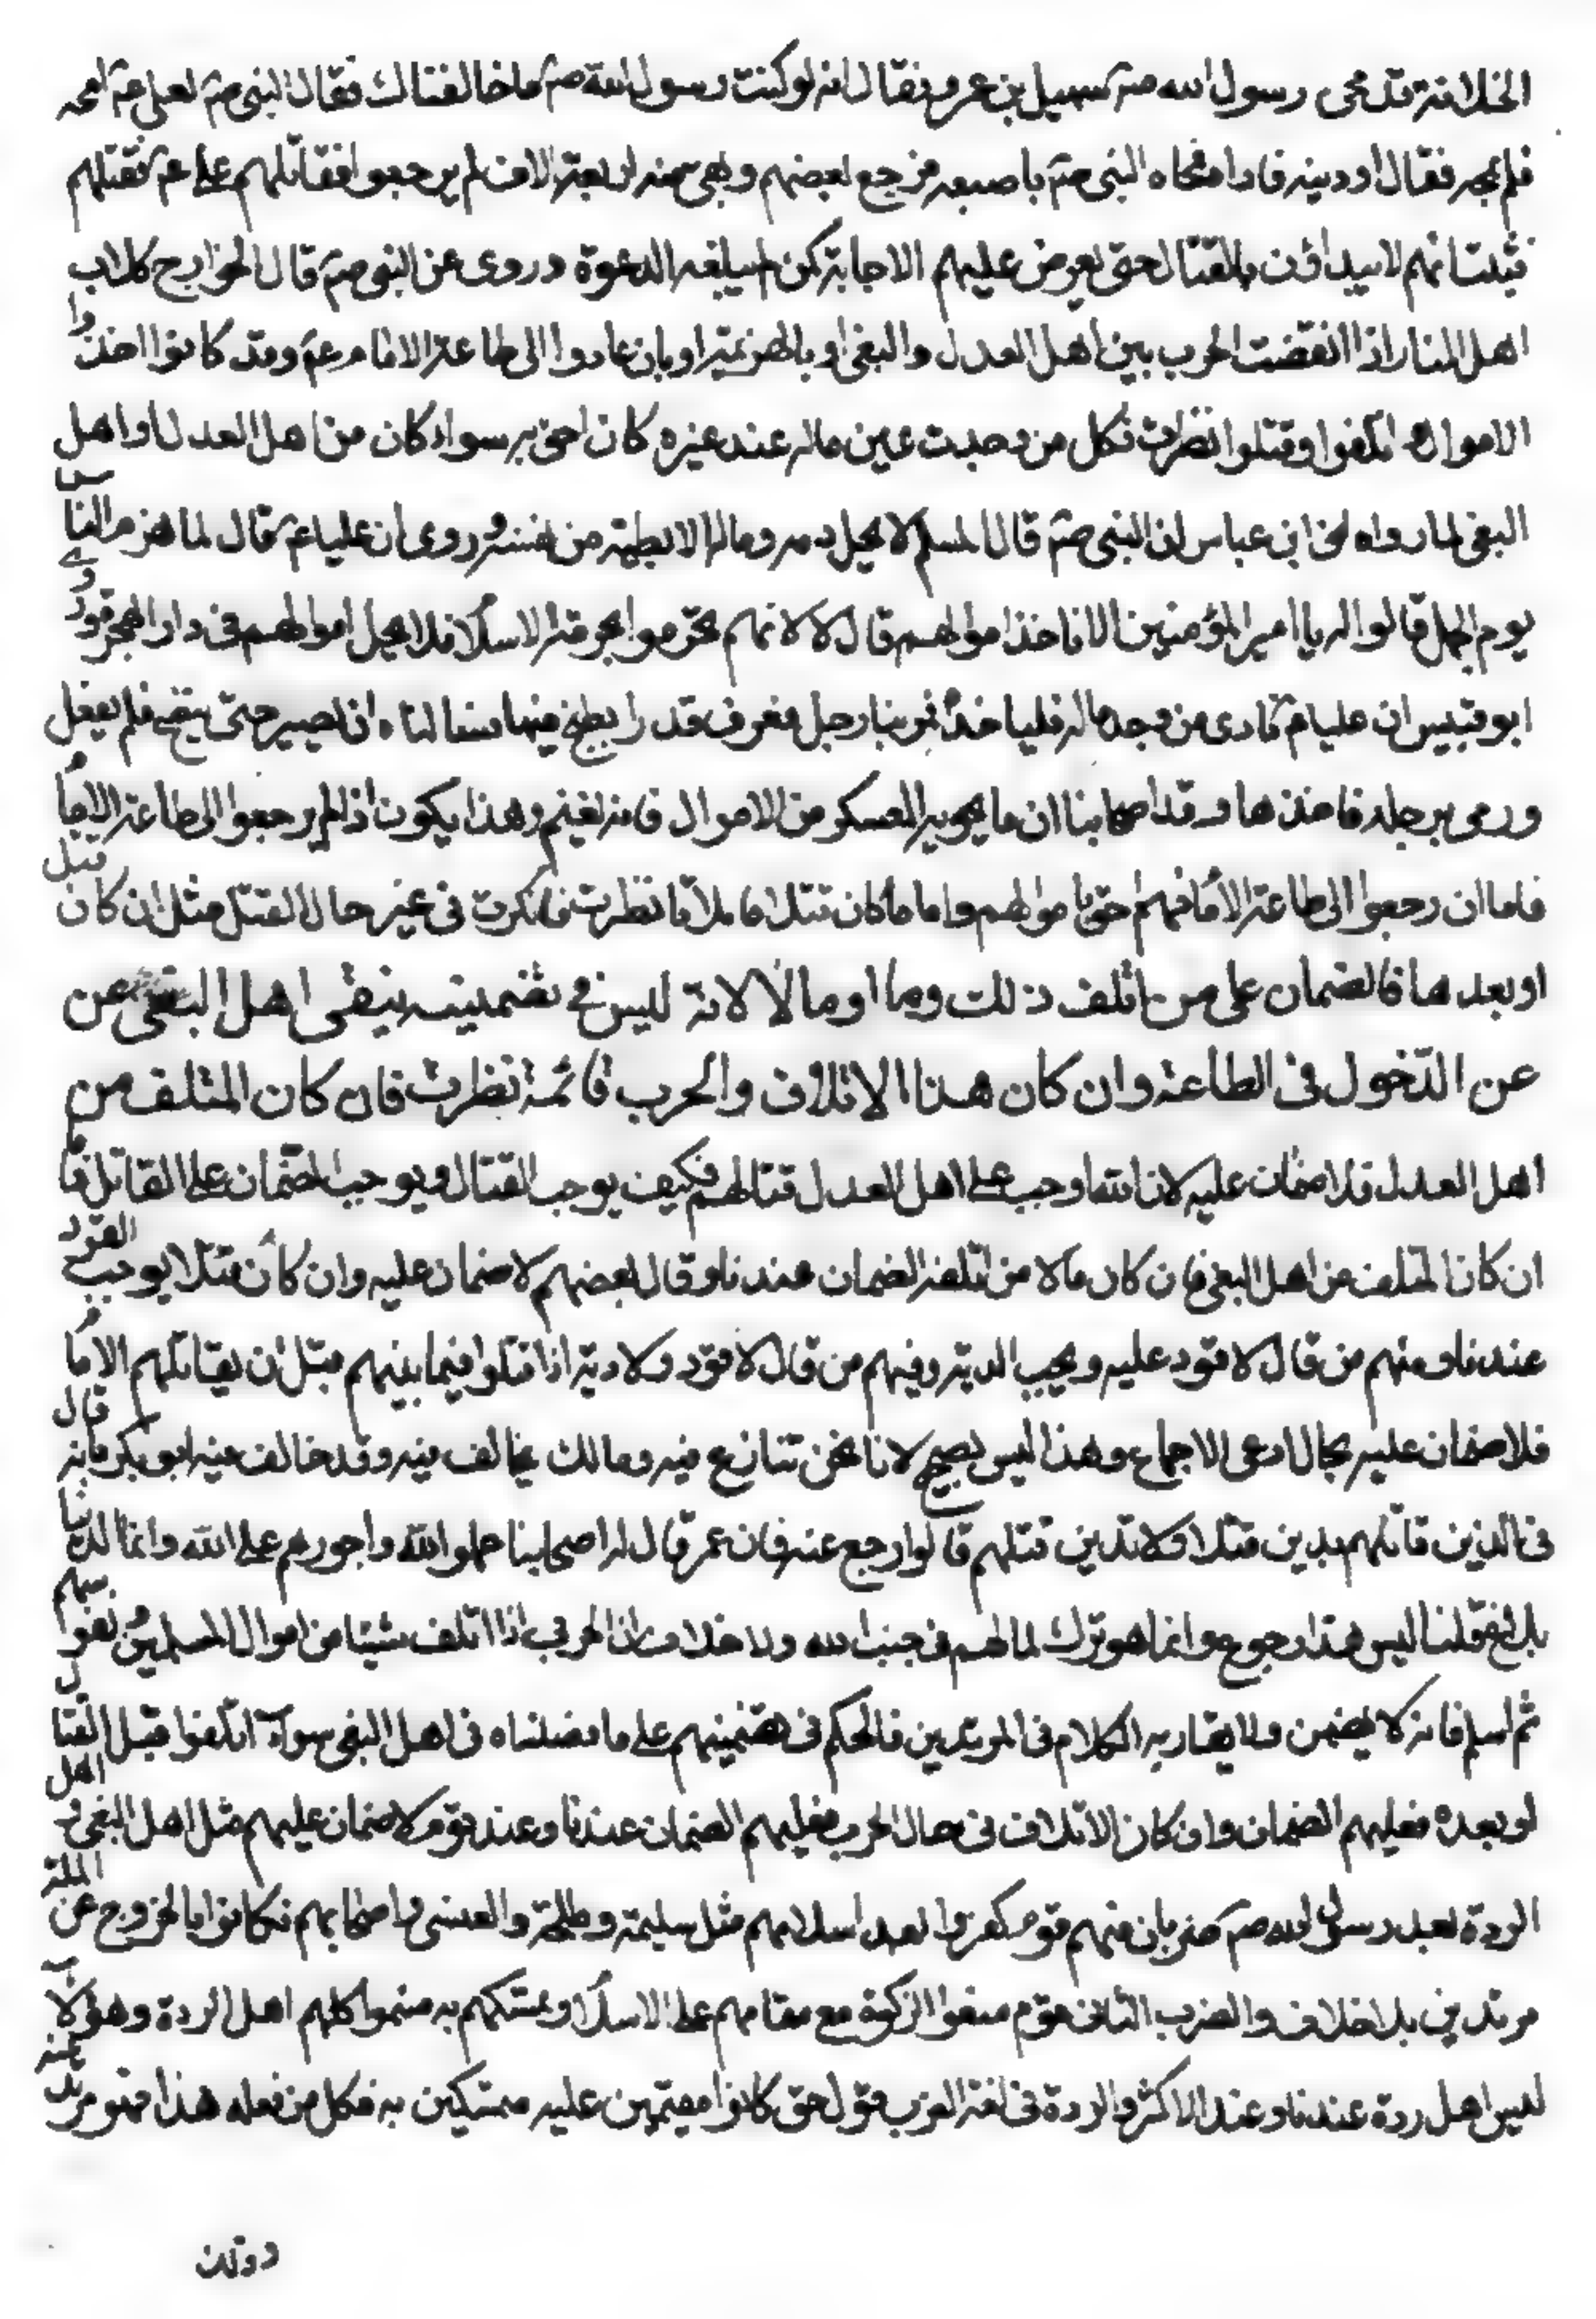 الخلافة قد محى رسول الله صم سهيل بن عمرو فقال انه لو كنت رسول الله صم ما خالفناك فقال النبى صم لعلى عم امحه
فلم يمحه فقال اودينه فاداه فمحاه النبى صم باصبعه فرجع بعضهم وبقى منه اربعة الاف لم يرجعوا فقاتلهم على عم فقتلهم
فثبت انهم لا يبداؤن بالقتال حتى يعرض عليهم الاجابة كمن لم يبلغه الدعوة وروى عن النبى صم قال الخوارج كلاب
اهل النار اذا انقضت الحرب بين اهل العدل والبغى او بالهزيمة او بان عادوا الى طاعة الامام عم وقد كانوا اخذوا
الاموال اتلفوا وقتلوا نظرت فكل من وجدت عين ماله عند غيره كان احق به سواء كان من اهل العدل او اهل
البغى لما رواه ابن عباس ان النبى صم قال المسلم لا يحل دمه وماله الا بطيبة من نفسه وروى ان عليا عم قال لما هزم الناس
يوم الجمل قالوا له يا امير المؤمنين الا ناخذ اموالهم قال لا لانهم تحرموا بحرمة الاسلام فلا يحل اموالهم فى دار الهجرة وروى
ابو قيس ان عليا عم نادى من وجد ماله فلياخذه فمر بنا رجل فعرف قدرا يطبخ فيها فسالناه ان يصير حتى ينضج فلم يفعل
ورمى برجله فاخذها وقد اصحابنا ان ما يحويه العسكر من الاموال فانه يغنم وهذا يكون اذا لم يرجعوا الى طاعة الامام
فاما ان رجعوا الى طاعة الامام فهم احق باموالهم واما ما كان قتلا اما تلافا نظرت فان كرت فى غير حال القتل مثل ان كان قبل
او بعدها فالضمان على من اتلف ذلك وما او مالا لانة ليس فى تضمينه ينفى اهل البغى عن
عن الدّخول فى الطاعة وان كان هذا الاتلاف والحرب قائمة نظرت فان كان المتلف من
اهل العدل فلا ضمان عليه لان الله اوجب على اهل العدل قتالهم فكيف يوجب القتال ويوجب الضمان على القاتل فا
ان كان المتلف من اهل البغى فان كان مالا من اتلفه الضمان عندنا وقال بعضهم لا ضمان عليه وان كان قتلا يوجب القود
عندنا ومنهم من قال لا قود عليه ويجب الدية وفيهم من قال لا قود ولا دية اذا قتلوا فيما بينهم قبل ان يقاتلهم الامام
فلا ضمان عليه بحال ادعى الاجماع وهذا ليس بصحيح لانا نحن تنازع فيه ومالك يخالف فيه وقد خالف فيه ابو بكر فانه قال
فى الذين قاتلهم يدين قتلانا ولا ندين قتلهم قالوا رجع عنه فان عمر قال له اصحابنا عملوا لله واجورهم على الله وانما الدنيا
بلاغ قلنا ليس هذا رجوع وانما هو ترك لما لهم فى جنب الله ولا خلاف ان الحربى اذا اتلف شيئا من اموال المسلمين نفوسهم
ثم اسلم فانه لا يضمن ولما يقاربه الكلام فى المرتدين فالحكم فى تضمينهم على ما فضلناه فى اهل البغى سواء اتلفوا قبل القتال
او بعده فعليهم الضمان وان كان الاتلاف فى حال الحرب فعليهم الضمان عندنا وعند قوم لا ضمان عليهم مثل اهل البغى و اهل
الردة بعد رسول الله صم ضربان منهم قوم كفروا بعد اسلامهم مثل سليمة وطلحة والعنسى واصحابهم فكانوا بالخروج عن الملة
مرتدين بلا خلاف والضرب الثانى قوم منعوا الزكوة مع مقامهم على الاسلام وتمسكهم به فسموا كلهم اهل الردة وهؤلاء
ليس اهل ردة عندنا وعند الاكثر والردة فى لغة العرب قول حق كانوا مقيمين عليه متمسكين به فكل من فعله هذا فهو مرتد